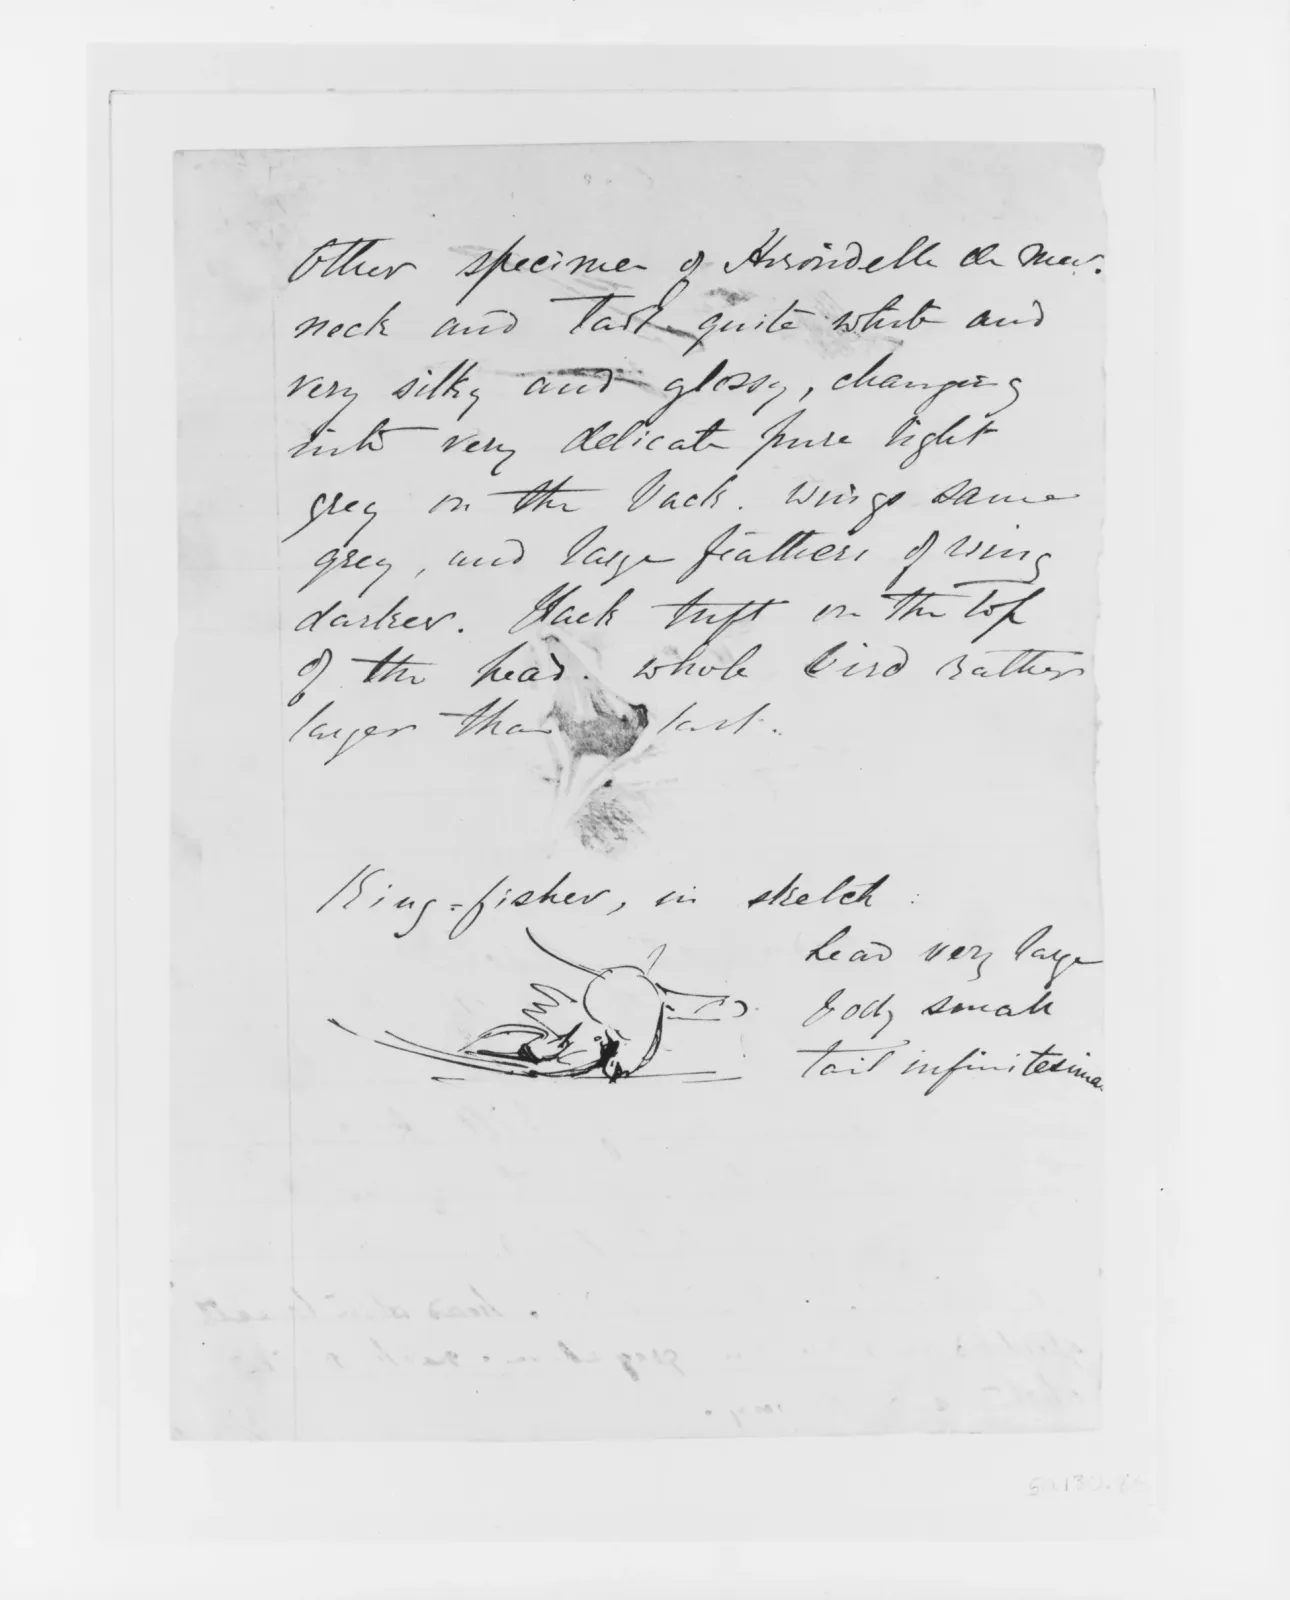 Other specimen of Hirondelle de Mer.
neck and tail quite white and
very silky and glossy, changing
into very delicate pure light
grey on the back. wings same
grey, and large feathers of wing
darker. Black tuft on the top
of the head. whole bird rather
larger than last.
King-fisher, in sketch :
head very large
body small
tail infinitesima